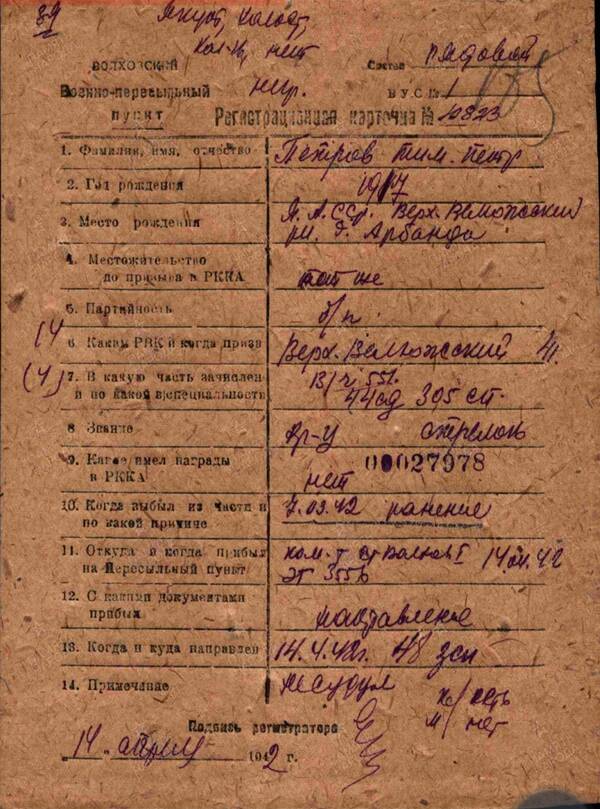 39
Якут, холост,
нет
ВОЛХОВСКИЙ Состав рядовой
Военно-пересыльный В У С № 1
пункт Регистрационная карточка № 10823
1. Фамилия, имя, отчество Петров Тим. Петр
2. Год рождения 1917
3. Место рождения Я. А. ССР. Верх. Вилюжский
Арбанда
4. Местожительство
до призыва в РККА там же
5. Партийность б/п
14 6 Каким РВК и когда призв Верх. Вилюжский 41.
(4) 7. В какую часть зачислен в/ч
и по какой в/специальности 44 сд 305 сп.
8 Звание кр-ц стрелок
9. Какие имел награды 00027978
в РККА нет
10. Когда выбыл из части и 7.03.42 ранение
по какой причине
11. Откуда и когда прибыл 14.04.42
на Пересыльный пункт ЭГ
12. С какими документами
прибыл направление
13. Когда и куда направлен 14.4.42г. 48 зсп
14. Примечание несудим
нет
Подпись регистратора
„14" апреля 1942 г.